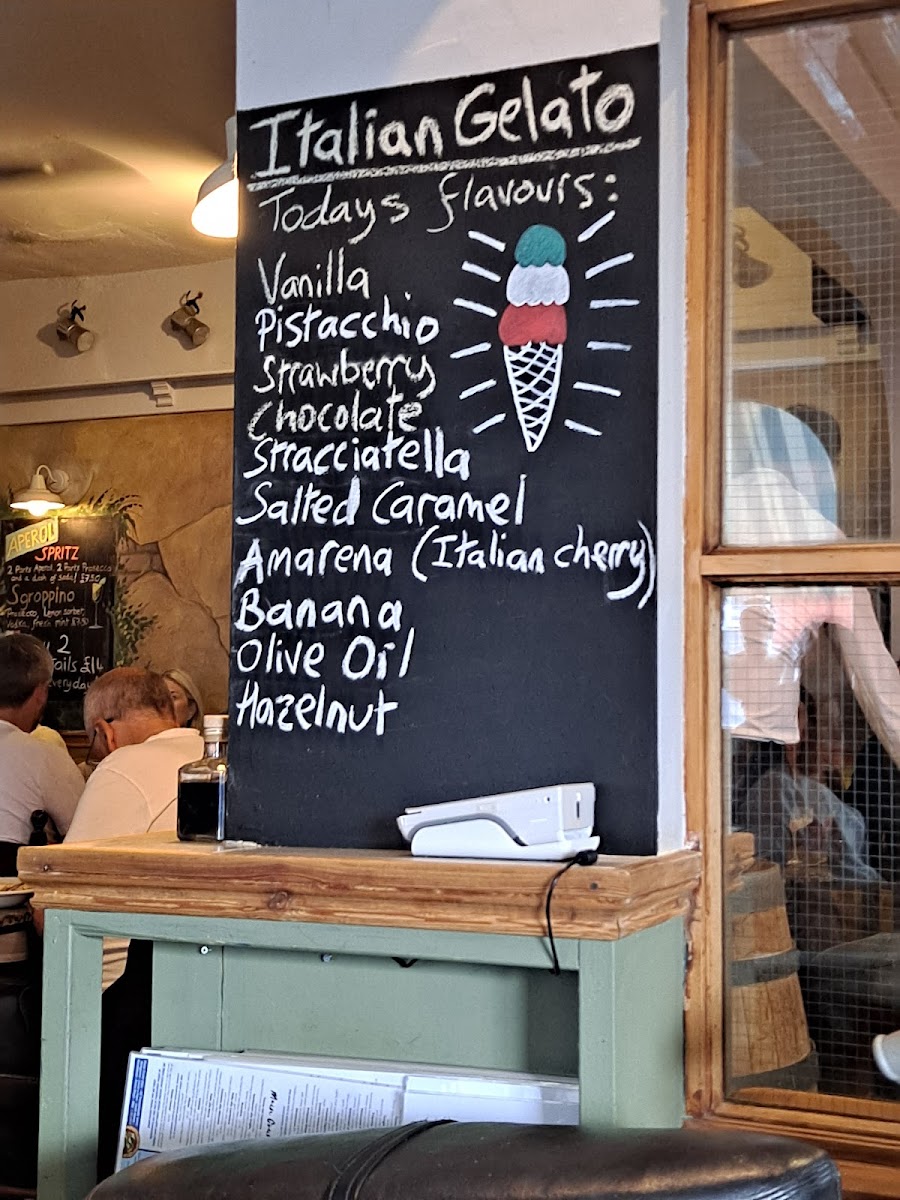 Italian Gelato
Todays flavours:
Vanilla
Pistacchio
Strawberry
Chocolate
Stracciatella
Salted Caramel
Amarena (Italian cherry)
Banana
Olive Oil
Hazelnut
APEROL
SPRITZ
2 Parts Aperol, 2 Parts Prosecco
and a dash of soda! £7.50
Sgroppino
Prosecco, Lemon sorbet,
Vodka, fresh mint £7.50
2
tails £14
everyday